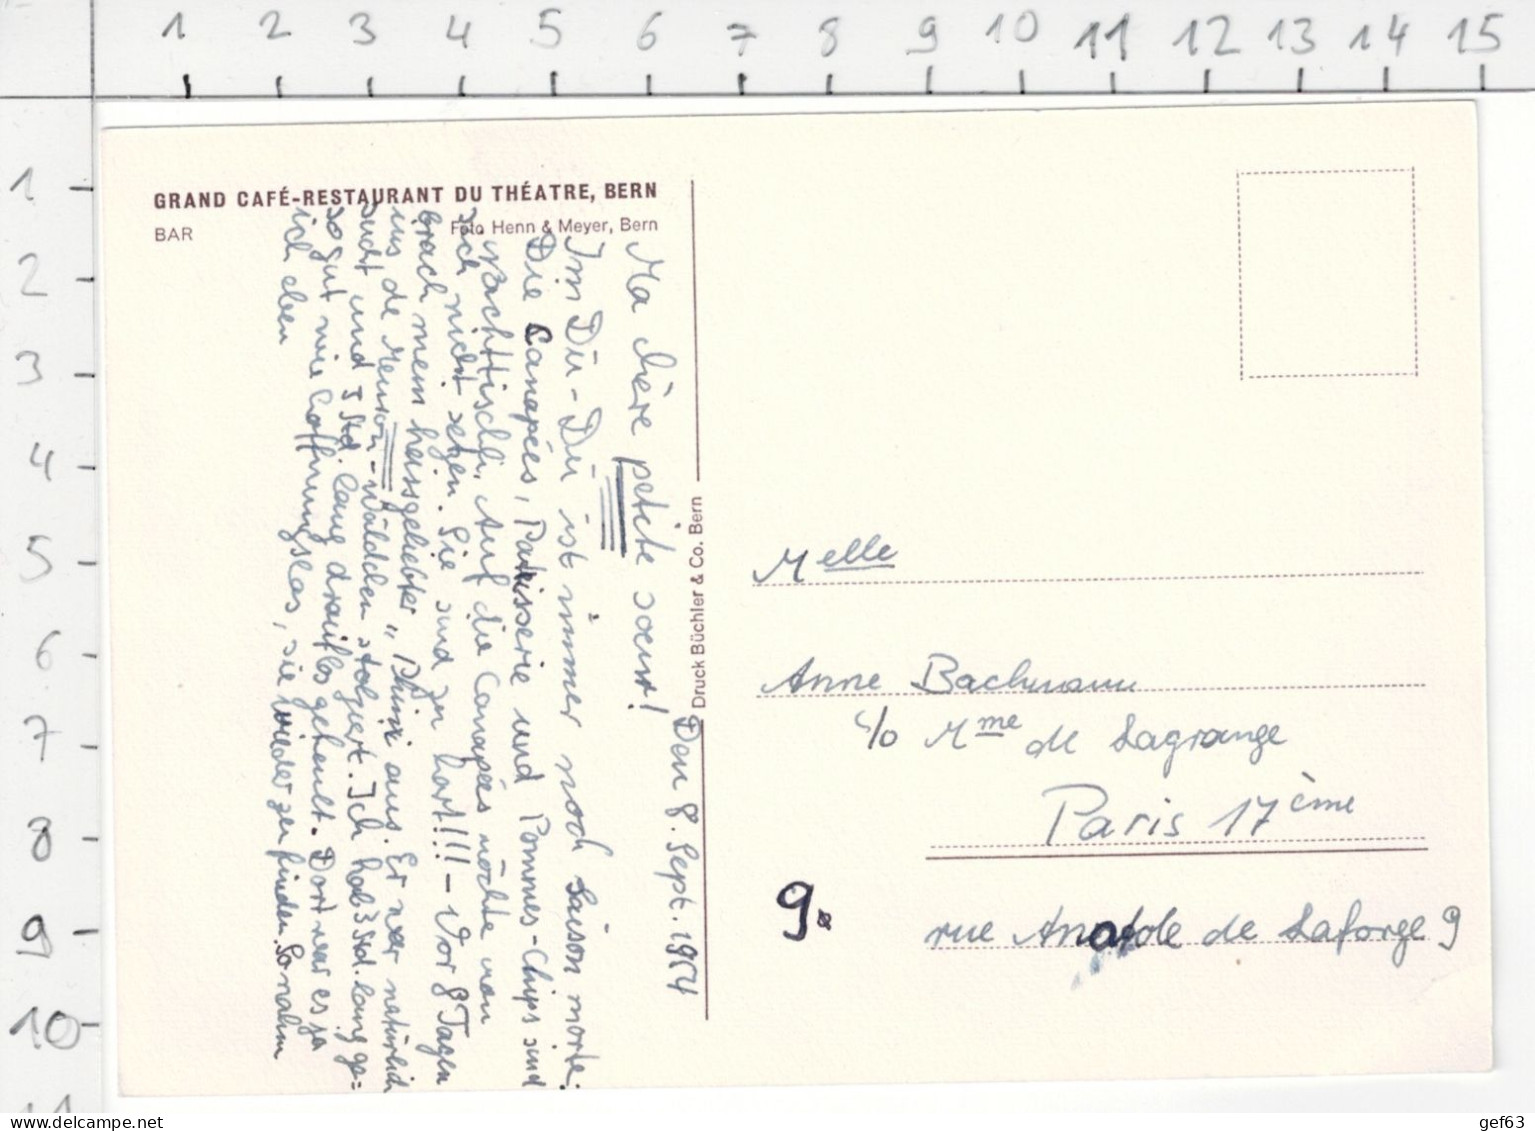 1 2 3 4 5 6 7 8 9 10 11 12 13 14 15
1
2
3
4
5
6
7
8
9
10
11
GRAND CAFÉ-RESTAURANT DU THÉATRE, BERN
BAR
Foto Henn & Meyer, Bern
Druck Büchler & Co. Bern
Den 8. Sept. 1954
Ma chère petite soeur!
Im Dü-Dü ist immer noch Saison morte.
Die Canapés, Patisserie und Pommes-Chips sind
Auf die Canapés möchte man
sich nicht setzen. Sie sind zu hart!!! - Vor 8 Tagen
brach mein heissgeliebter „ aus. Er war natürlich
ins de -Wäldchen stolziert. Ich hab 3 Std. lang ge=
sucht und Std. lang drauflos geheult. Dort war es ja
so gut wie hoffnungslos, sie wieder zu finden. So nahm
ich eben
Melle
Anne Bachmann
c/o Mme de Lagrange
Paris 17ème
9.
rue Anatole de Laforge 9
www.delcampe.net
gef63